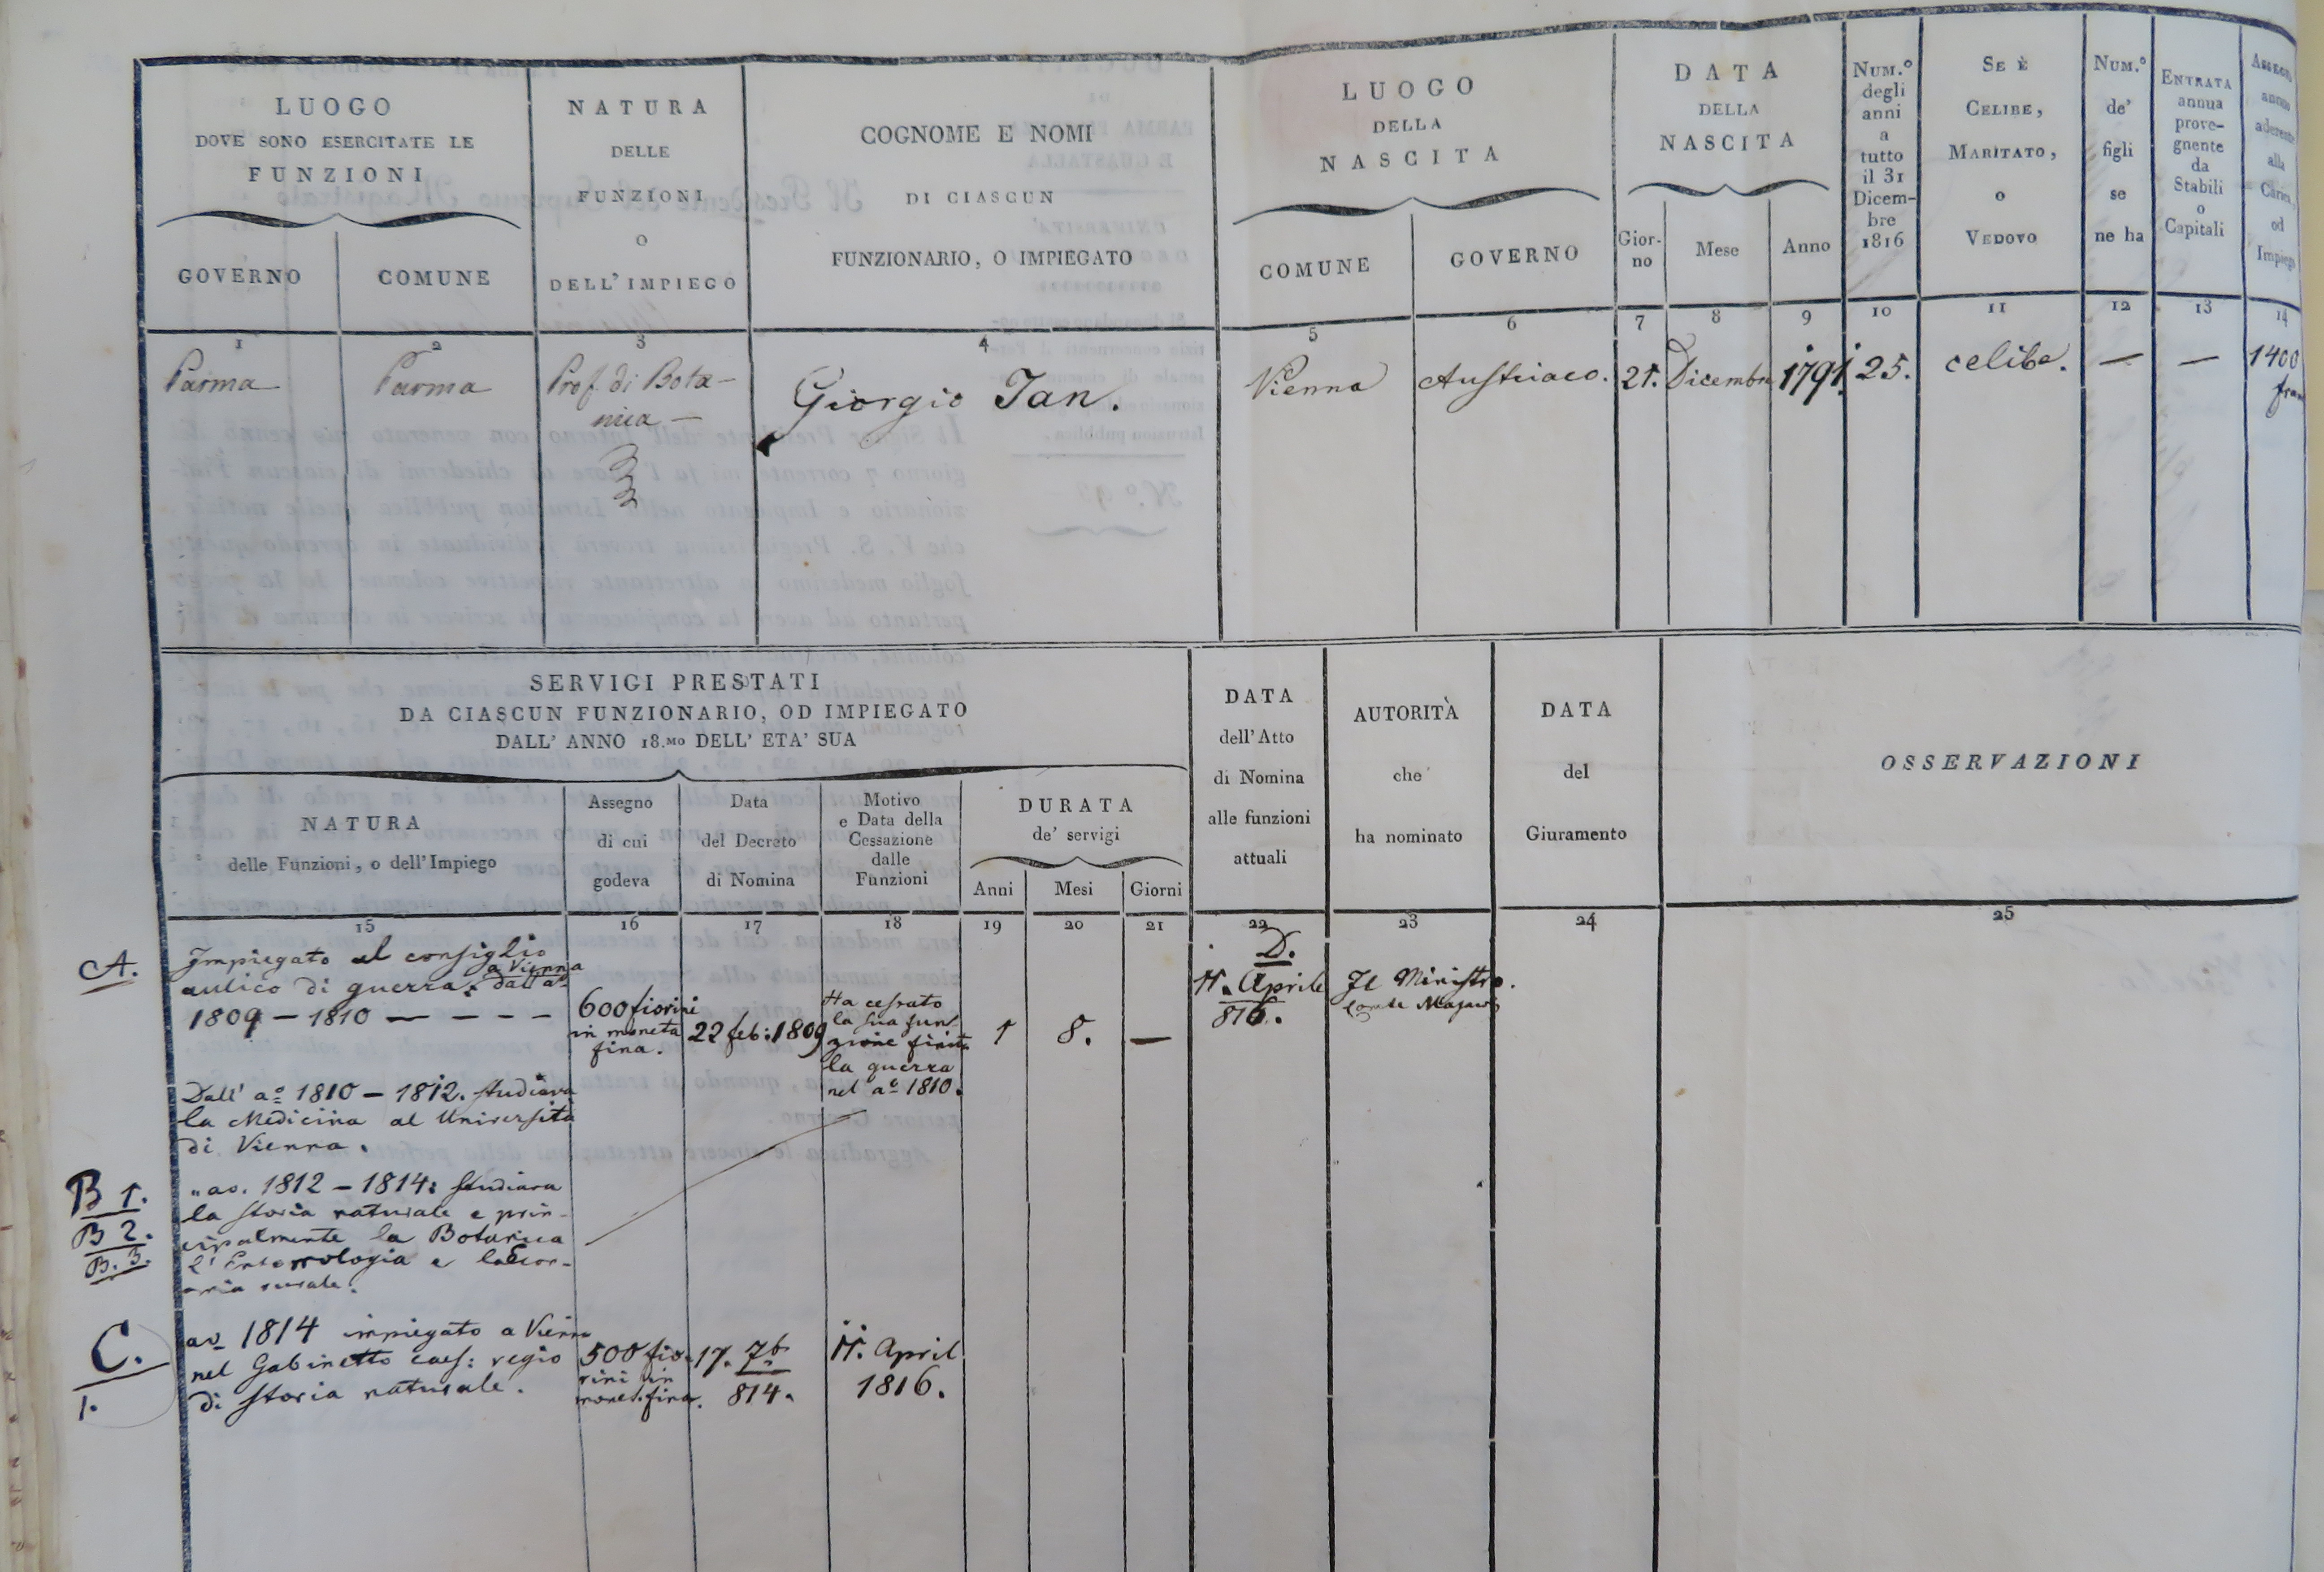 LUOGO
DOVE SONO ESERCITATE LE
FUNZIONI
GOVERNO
COMUNE
NATURA
DELLE
FUNZIONI
O
DELL'IMPIEGO
COGNOME E NOMI
DI CIASCUN
FUNZIONARIO, O IMPIEGATO
LUOGO
DELLA
NASCITA
COMUNE
GOVERNO
DATA
DELLA
NASCITA
Gior-
no
Mese
Anno
NUM.º
degli
anni
a
tutto
il 31
Dicem-
bre
1816
SE È
CELIBE,
MARITATO,
o
VEDOVO
NUM.º
de'
figli
se
ne ha
ENTRATA
annua
prove-
gnente
da
Stabili
o
Capitali
ASSEGNO
annuo
aderente
alla
Carica,
od
Impiego
1
2
3
4
5
6
7
8
9
10
11
12
13
14
Parma
Parma
Prof. di Bota-
nica —
Giorgio Jan.
Vienna
Austriaco.
21.
Dicembre
1791.
25.
celibe.
—
—
1400
fran
SERVIGI PRESTATI
DA CIASCUN FUNZIONARIO, OD IMPIEGATO
DALL' ANNO 18.MO DELL' ETA' SUA
NATURA
delle Funzioni, o dell'Impiego
Assegno
di cui
godeva
Data
del Decreto
di Nomina
Motivo
e Data della
Cessazione
dalle
Funzioni
DURATA
de' servigi
Anni
Mesi
Giorni
DATA
dell'Atto
di Nomina
alle funzioni
attuali
AUTORITÀ
che
ha nominato
DATA
del
Giuramento
OSSERVAZIONI
15
16
17
18
19
20
21
22
23
24
25
A.
Impiegato al consiglio
aulico di guerra. a Vienna dall'aº
1809 — 1810 — — — —
600 fiorini
in moneta
fina.
22 feb: 1809
Ha cessato
la sua fun-
zione finita
la guerra
nel aº 1810.
1
8.
—
D.
11. Aprile
816.
Il Ministro.
Conte
Dall' aº 1810 — 1812. studiava
la Medicina al Università
di Vienna.
B 1.
B 2.
B. 3.
" ao. 1812 — 1814: studiava
la storia naturale e prin-
cipalmente la Botanica
l'Entomologia e la Econ-
omia rurale.
C.
1.
aº 1814 impiegato a Vienna
nel Gabinetto caes: regio
di storia naturale.
500 fio-
rini in
monet: fina.
17. 7b
814.
11. April
1816.